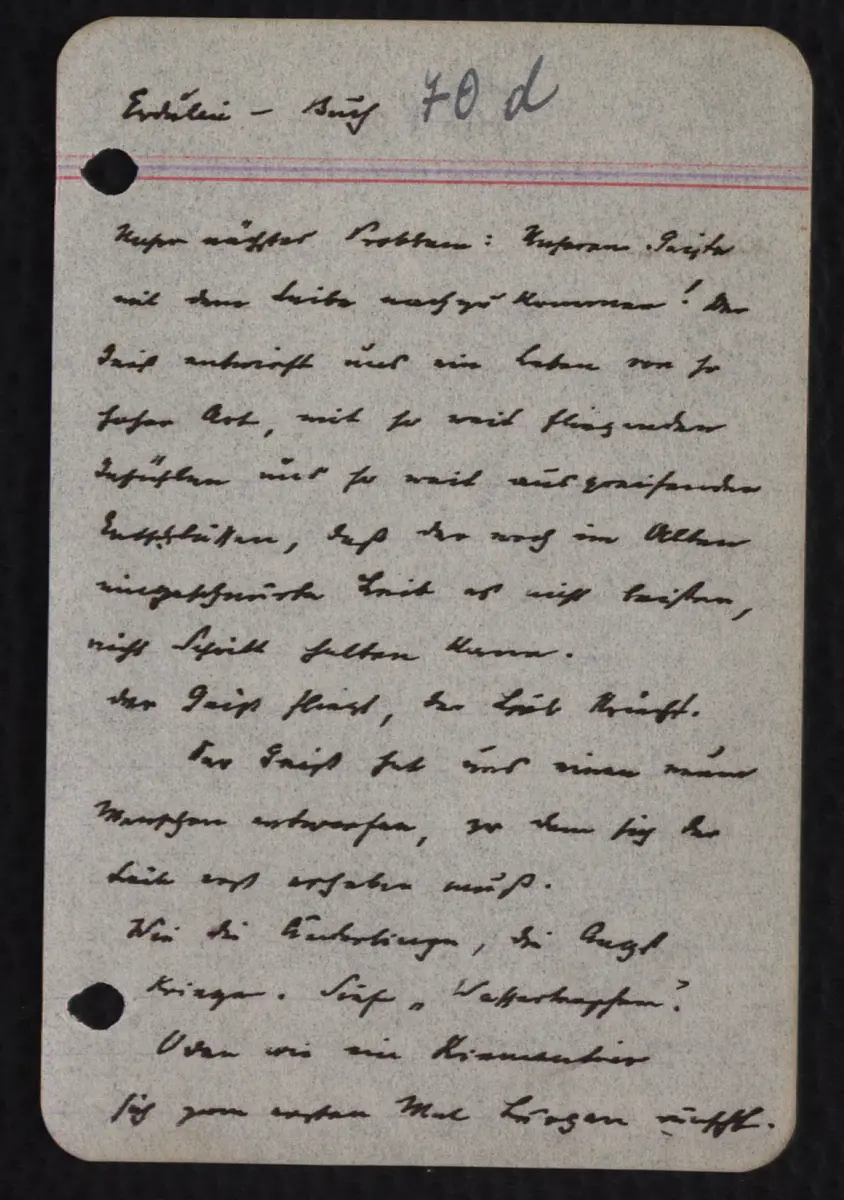 Erdulein – Buch 70 d
Unser nächstes Problem: Unserem Geiste
mit dem Leibe nachzukommen! Der
Geist entwirft uns ein Leben von so
hoher Art, mit so weit fliegenden
Gefühlen und so weit ausgreifenden
Entschlüssen, daß der noch im Alten
eingeschnürte Leib es nicht leisten,
nicht Schritt halten kann.
Der Geist fliegt, der Leib kriecht.
Der Geist hat uns einen neuen
Menschen entworfen, zu dem sich der
Leib erst erheben muß.
Wie die, die Angst
kriegen. Sieh „Wassertropfen".
Oder wie ein Kiementier
sich zum ersten Mal Lungen